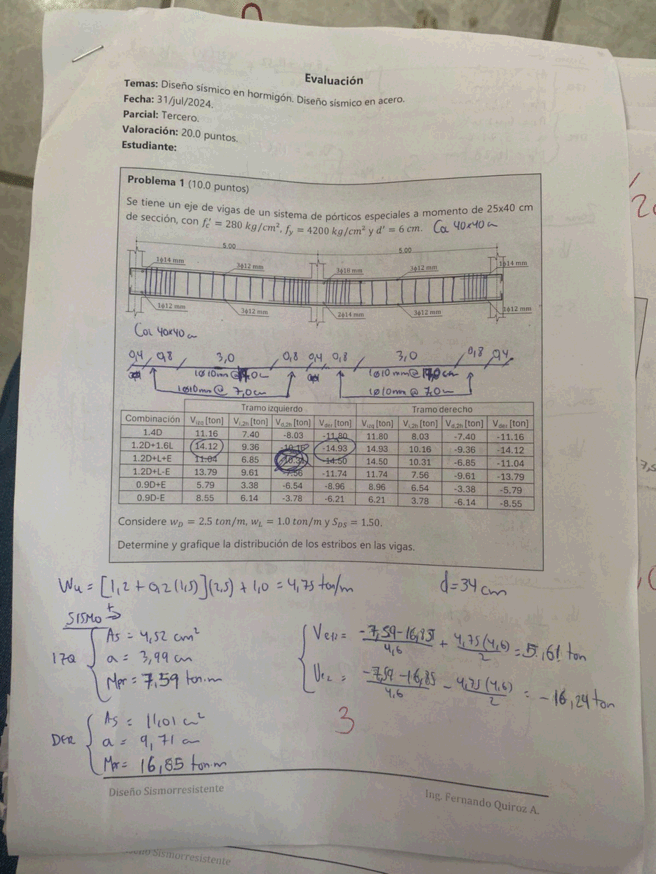 Evaluación
Temas: Diseño sísmico en hormigón. Diseño sísmico en acero.
Fecha: 31/jul/2024.
Parcial: Tercero.
Valoración: 20.0 puntos.
Estudiante:
Problema 1 (10.0 puntos)
Se tiene un eje de vigas de un sistema de pórticos especiales a momento de 25x40 cm
de sección, con f'c = 280 kg/cm², fy = 4200 kg/cm² y d' = 6 cm. Col 40x40 cm
5.00 5.00
1ϕ14 mm 3ϕ12 mm 3ϕ10 mm 3ϕ12 mm 1ϕ14 mm
3ϕ12 mm 3ϕ12 mm 2ϕ14 mm 3ϕ12 mm 3ϕ12 mm
Col 40x40 cm
0,4 0,8 3,0 0,8 0,4 0,8 3,0 0,8 0,4
1ϕ10mm@ 7,0cm 1ϕ10mm@ 7,0cm
Tramo izquierdo Tramo derecho
Combinación Vizq [ton] Vi,2h [ton] Vd,2h [ton] Vder [ton] Vizq [ton] Vi,2h [ton] Vd,2h [ton] Vder [ton]
1.4D 11.16 7.40 -8.03 -11.80 11.80 8.03 -7.40 -11.16
1.2D+1.6L 14.12 9.36 -10.16 -14.93 14.93 10.16 -9.36 -14.12
1.2D+L+E 11.04 6.85 -10.31 -14.50 14.50 10.31 -6.85 -11.04
1.2D+L-E 13.79 9.61 -7.56 -11.74 11.74 7.56 -9.61 -13.79
0.9D+E 5.79 3.38 -6.54 -8.96 8.96 6.54 -3.38 -5.79
0.9D-E 8.55 6.14 -3.78 -6.21 6.21 3.78 -6.14 -8.55
Considere wD = 2.5 ton/m, wL = 1.0 ton/m y SDS = 1.50.
Determine y grafique la distribución de los estribos en las vigas.
Wu = [1,2 + 0,2(1,5)](2,5) + 1,0 = 4,75 ton/m d = 34 cm
SISMO →
IZQ As = 4,52 cm²
a = 3,99 cm
Mpr = 7,59 ton.m
Ve1 = -7,59-16,85 / 4,6 + 4,75(4,6) / 2 = 5,61 ton
Ve2 = -7,59-16,85 / 4,6 - 4,75(4,6) / 2 = -16,24 ton
DER As = 11,01 cm²
a = 9,71 cm
Mpr = 16,85 ton.m
3
Diseño Sismorresistente Ing. Fernando Quiroz A.
Sismorresistente